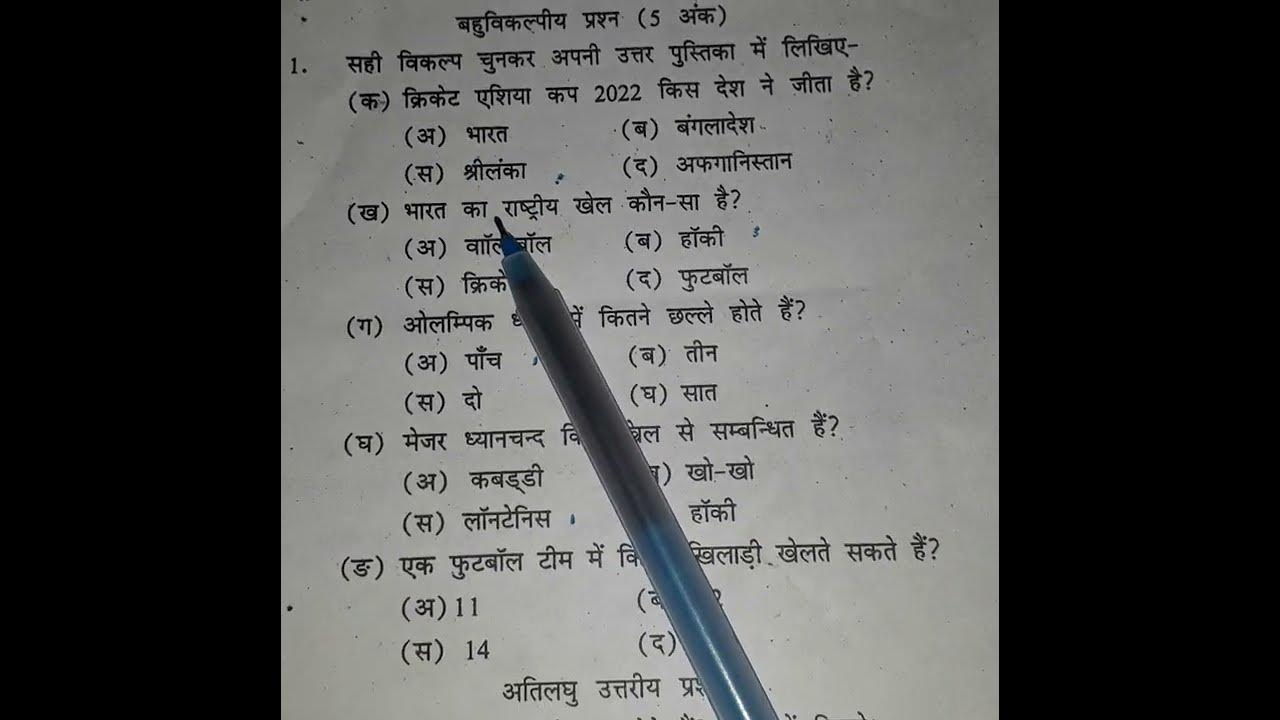 बहुविकल्पीय प्रश्न (5 अंक)
1. सही विकल्प चुनकर अपनी उत्तर पुस्तिका में लिखिए-
(क) क्रिकेट एशिया कप 2022 किस देश ने जीता है?
(अ) भारत (ब) बंगलादेश
(स) श्रीलंका (द) अफगानिस्तान
(ख) भारत का राष्ट्रीय खेल कौन-सा है?
(अ) (ब) हॉकी
(स) (द) फुटबॉल
(ग) ओलम्पिक में कितने छल्ले होते हैं?
(अ) पाँच (ब) तीन
(स) दो (घ) सात
(घ) मेजर ध्यानचन्द से सम्बन्धित हैं?
(अ) कबड्डी खो-खो
(स) लॉनटेनिस हॉकी
(ङ) एक फुटबॉल टीम में खिलाड़ी खेलते सकते हैं?
(अ) 11
(स) 14 (द)
अतिलघु उत्तरीय